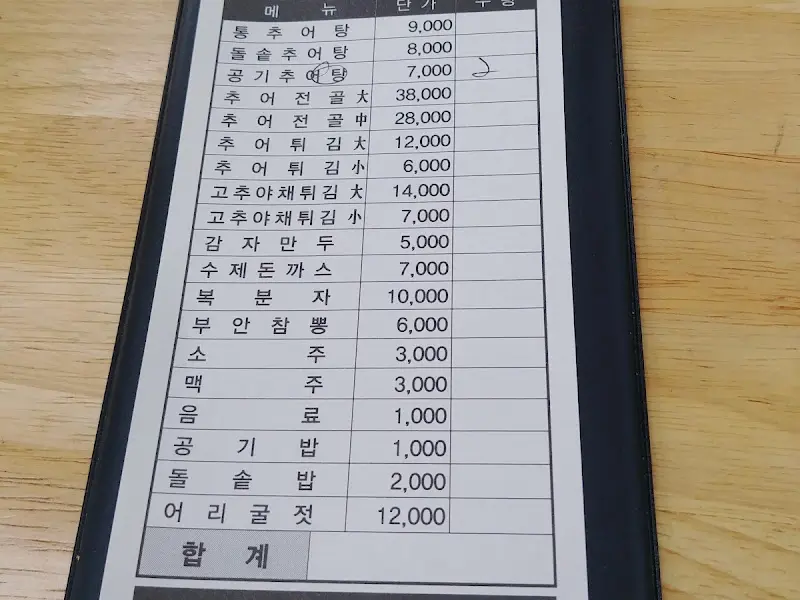 메 뉴 단 가 수 량
통 추 어 탕 9,000
돌 솥 추 어 탕 8,000
공 기 추 어 탕 7,000 2
추 어 전 골 大 38,000
추 어 전 골 中 28,000
추 어 튀 김 大 12,000
추 어 튀 김 小 6,000
고추야채튀김 大 14,000
고추야채튀김 小 7,000
감 자 만 두 5,000
수 제 돈 까 스 7,000
복 분 자 10,000
부 안 참 뽕 6,000
소 주 3,000
맥 주 3,000
음 료 1,000
공 기 밥 1,000
돌 솥 밥 2,000
어 리 굴 젓 12,000
합 계